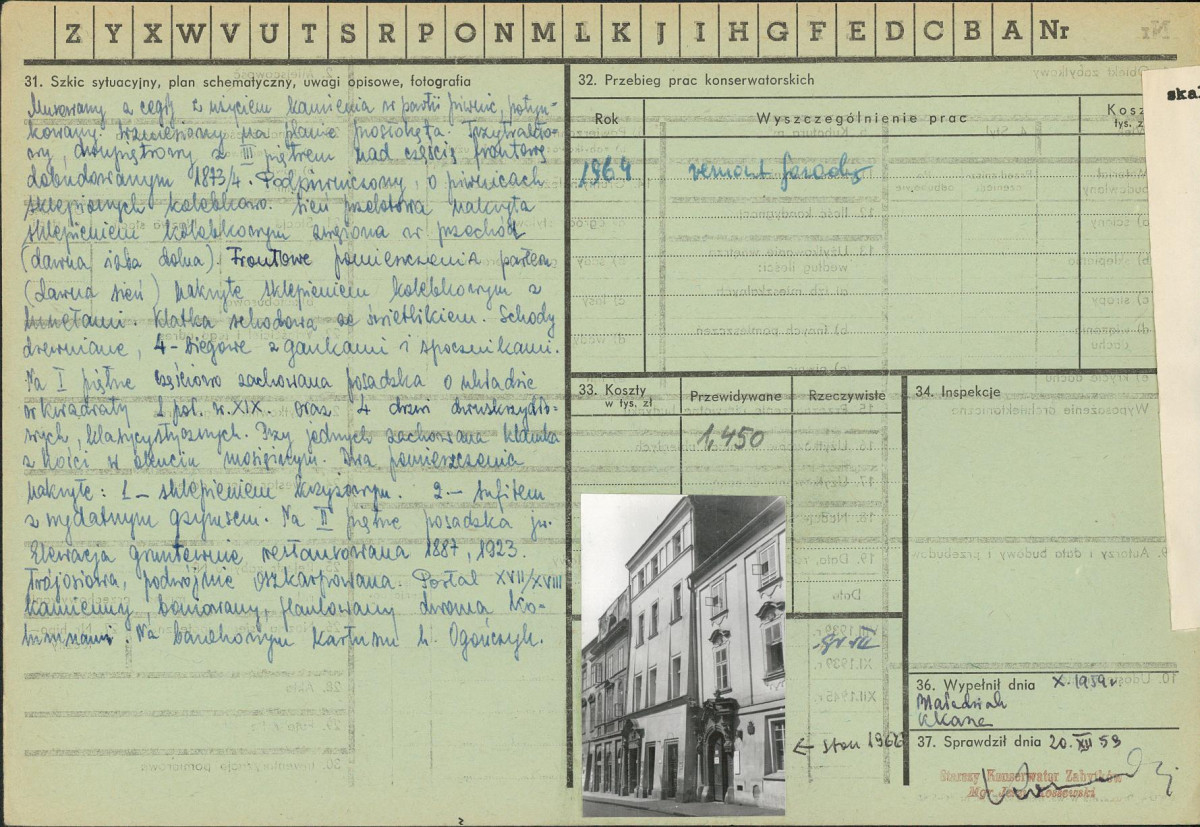 Z Y X W V U T S R P O N M L K J I H G F E D C B A Nr
31. Szkic sytuacyjny, plan schematyczny, uwagi opisowe, fotografia
Murowany z cegły z użyciem kamienia w partii piwnic, potyn-
kowany. Wzniesiony na planie prostokąta. Trzytrakto-
wy, dwupiętrowy z III piętrem nad częścią frontową
dobudowanym 1873/4. Podpiwniczony, o piwnicach
sklepionych kolebkowo. Sień przelotowa nakryta
sklepieniem kolebkowym zwężona w przechód
(dawna izba dolna). Frontowe pomieszczenia parteru
(dawna sień) nakryte sklepieniem kolebkowym z
lunetami. Klatka schodowa ze świetlikiem. Schody
drewniane, 4-biegowe z gankami i spocznikami.
Na I piętrze częściowo zachowana posadzka o układzie
w kwadraty 1 poł. w. XIX. oraz 4 drzwi dwuskrzydło-
wych, klasycystycznych. Przy jednych zachowana klamka
z kości w okuciu mosiężnym. Dwa pomieszczenia
nakryte: 1 – sklepieniem krzyżowym. 2 – sufitem
z wydatnym gzymsem. Na II piętrze posadzka jw.
Elewacja gruntownie restaurowana 1887, 1923.
Trójosiowa, podwójnie oszkarpowana. Portal XVII/XVIII
kamienny, boniowany, flankowany dwoma ko-
lumnami. Na barokowym kartuszu h. Ogończyk.
32. Przebieg prac konserwatorskich
Rok
Wyszczególnienie prac
Kosz
tys. z
1964 remont fasady
33. Koszty
w tys. zł
Przewidywane
Rzeczywiste
1,450
34. Inspekcje
← stan 1962
36. Wypełnił dnia X.1959r
37. Sprawdził dnia 20. XII 59
Starszy Konserwator Zabytków
Mgr Jerzy Kossowski
ska